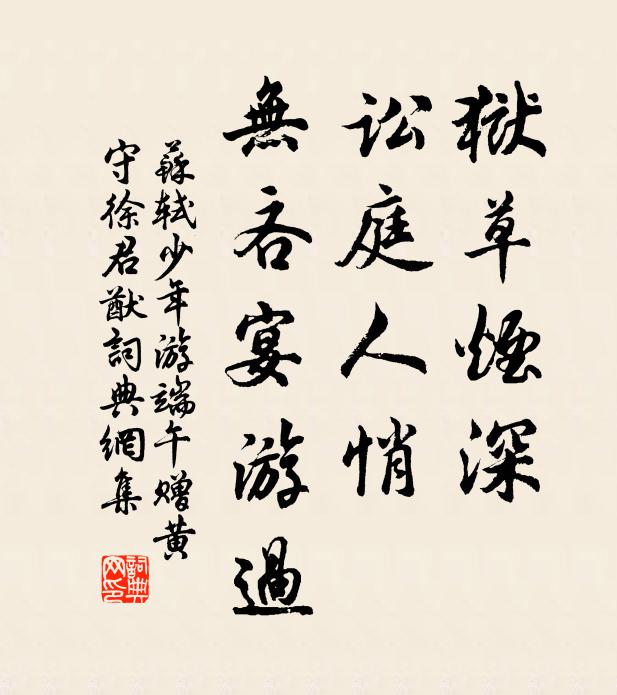 獄草煙深
訟庭人悄
無吝宴游過
蘇軾少年游端午贈黄
守徐君猷詞典網集
詞典网印